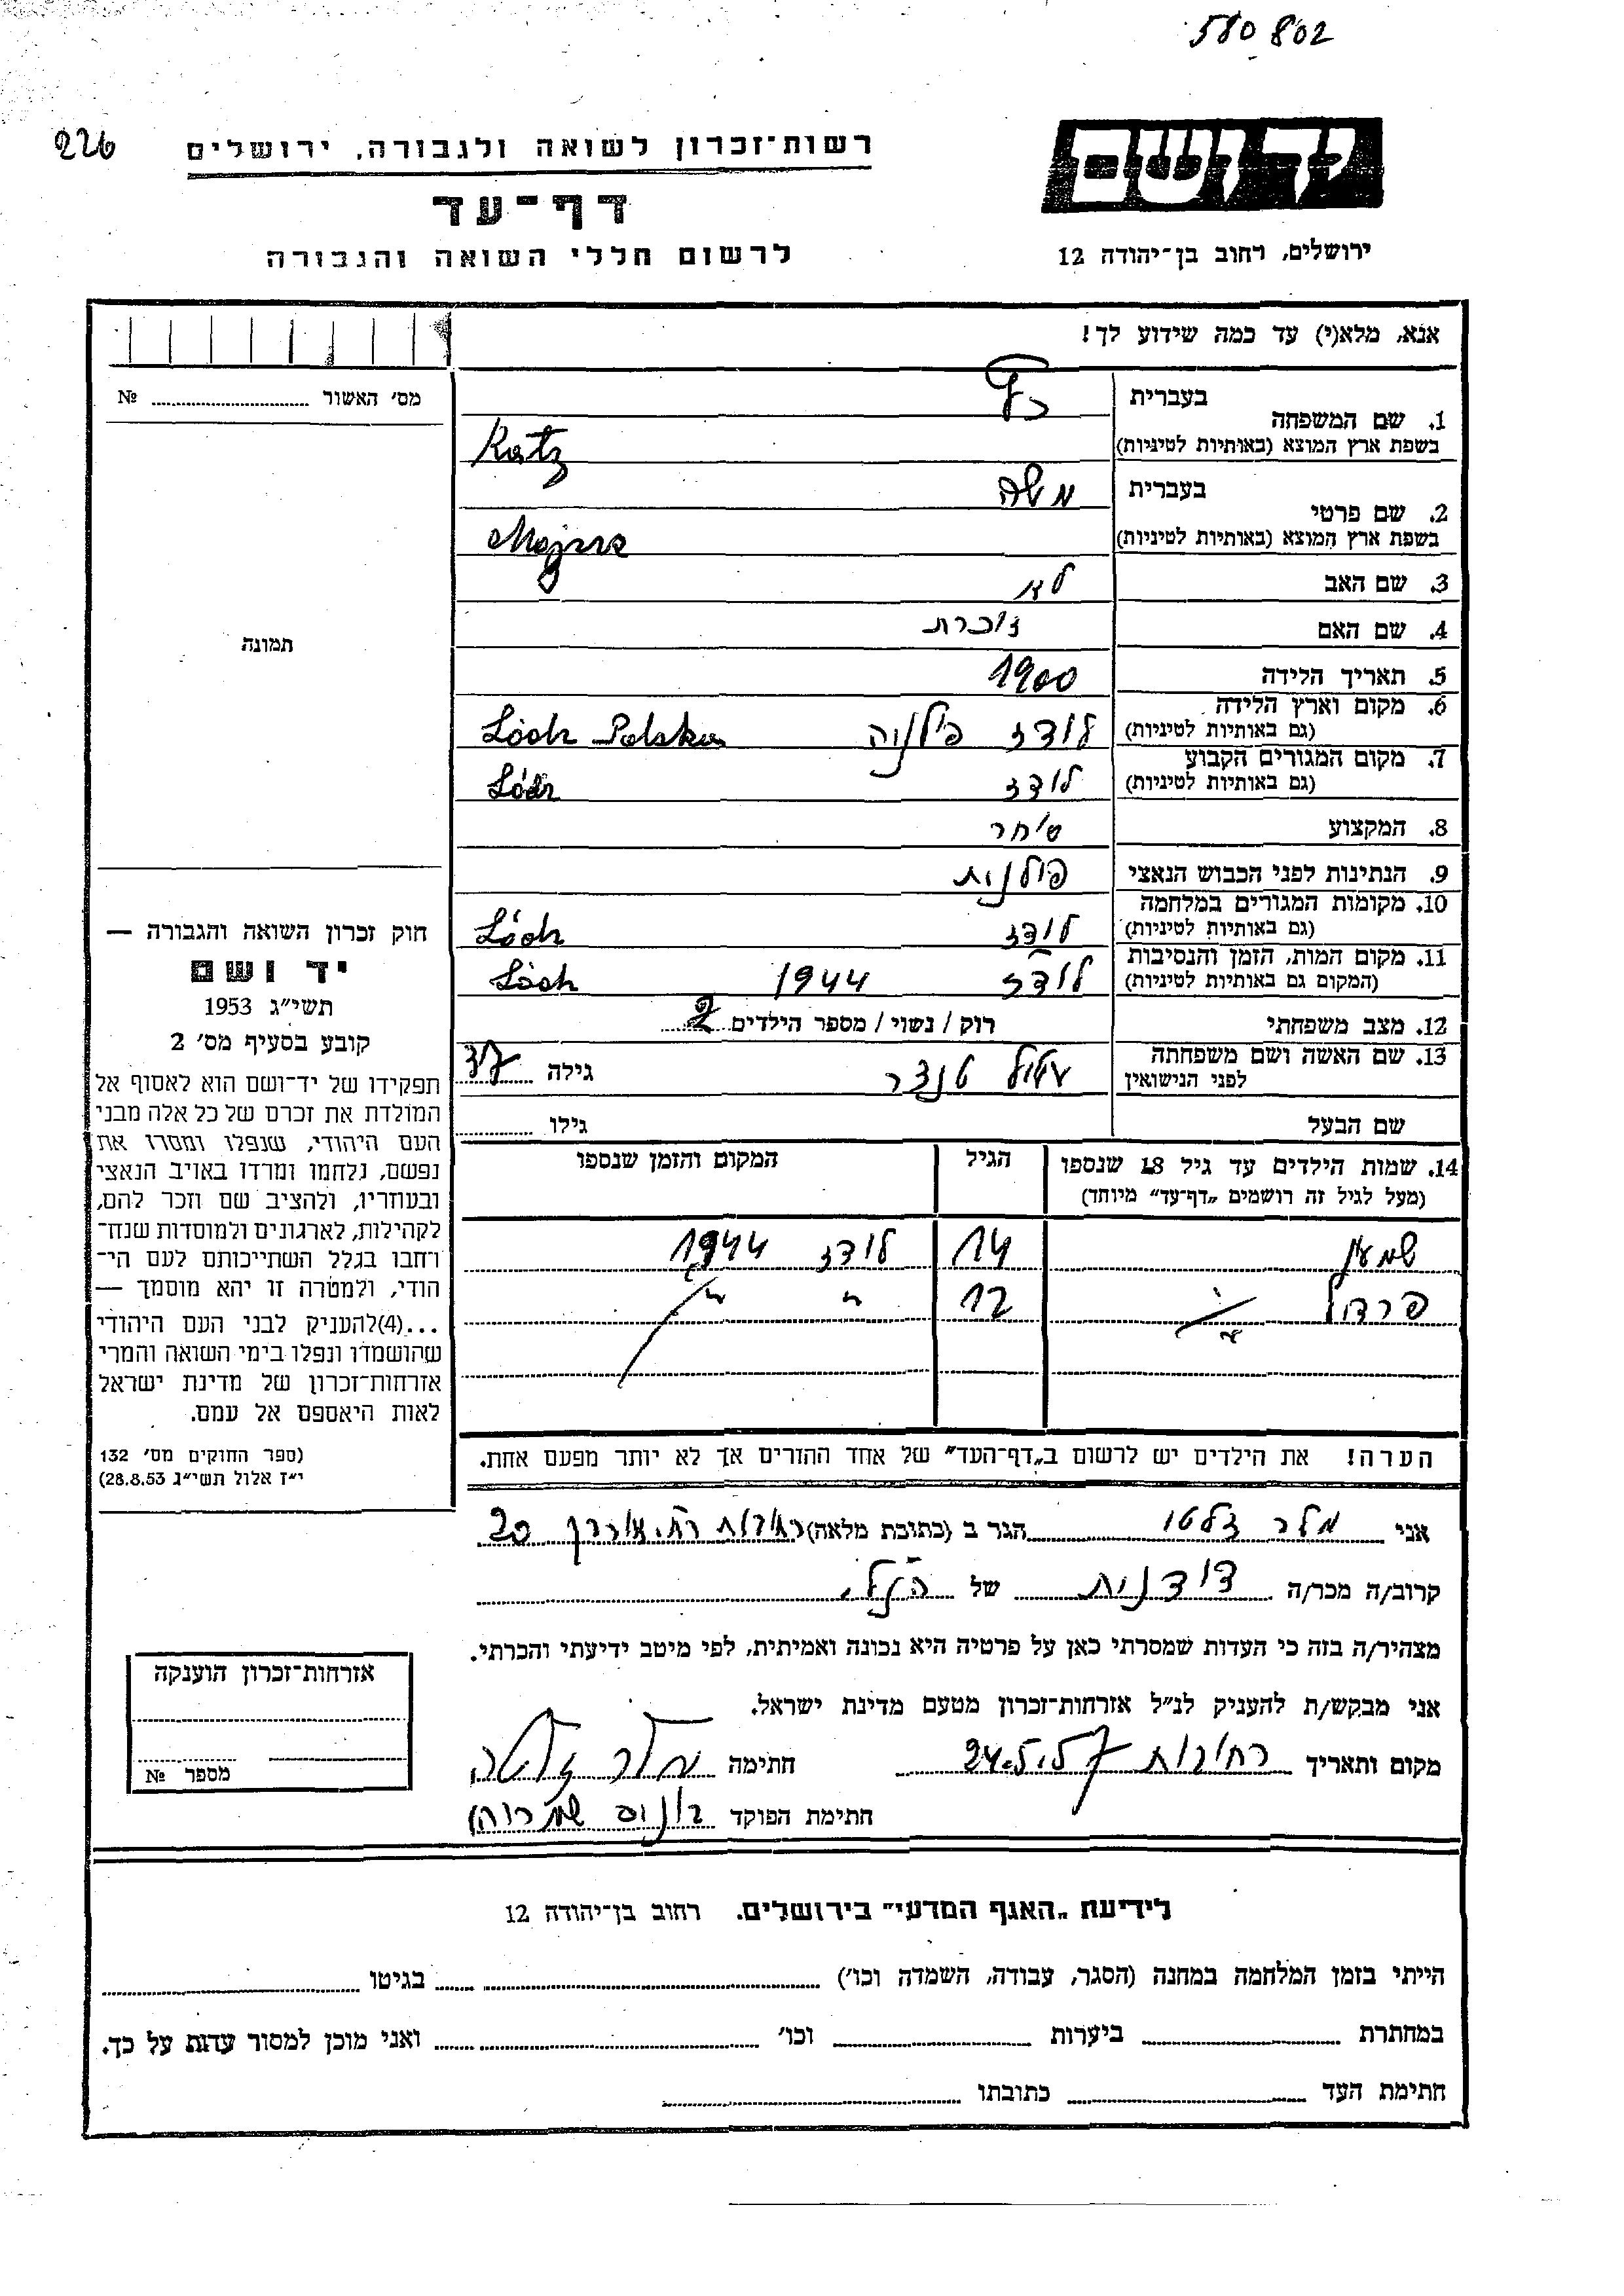 580 802
יד ושם
רשות־זכרון לשואה ולגבורה, ירושלים
226
דף־עד
ירושלים, רחוב בן־יהודה 12
לרשום חללי השואה והגבורה
אנא, מלא(י) עד כמה שידוע לך!
מס׳ האשור № ........
1. שם המשפחה
בעברית כץ
בשפת ארץ המוצא (באותיות לטיניות) Katz
2. שם פרטי
בעברית משה
בשפת ארץ המוצא (באותיות לטיניות) Mojsze
3. שם האב
4. שם האם
5. תאריך הלידה 1900
6. מקום וארץ הלידה
(גם באותיות לטיניות) לודז פולניה Lódz Polska
7. מקום המגורים הקבוע
(גם באותיות לטיניות) לודז Lódz
8. המקצוע סוחר
9. הנתינות לפני הכבוש הנאצי פולנית
10. מקומות המגורים במלחמה
(גם באותיות לטיניות) לודז Lódz
11. מקום המות, הזמן והנסיבות
(המקום גם באותיות לטיניות) לודז 1944 Lódz
12. מצב משפחתי רוק / נשוי / מספר הילדים 2
13. שם האשה ושם משפחתה
לפני הנישואין גילה 37
שם הבעל גילו ........
14. שמות הילדים עד גיל 18 שנספו
(מעל לגיל זה רושמים „דף־עד״ מיוחד)
הגיל
המקום והזמן שנספו
שמעון 14 לודז 1944
12 " "
הערה! את הילדים יש לרשום ב„דף־העד״ של אחד ההורים אך לא יותר מפעם אחת.
תמונה
חוק זכרון השואה והגבורה —
יד ושם
תשי״ג 1953
קובע בסעיף מס׳ 2
תפקידו של יד־ושם הוא לאסוף אל
המולדת את זכרם של כל אלה מבני
העם היהודי, שנפלו ומסרו את
נפשם, נלחמו ומרדו באויב הנאצי
ובעוזריו, ולהציב שם וזכר להם,
לקהילות, לארגונים ולמוסדות שנח־
רחבו בגלל השתייכותם לעם הי־
הודי, ולמטרה זו יהא מוסמך —
...(4)להעניק לבני העם היהודי
שהושמדו ונפלו בימי השואה והמרי
אזרחות־זכרון של מדינת ישראל
לאות היאספם אל עמם.
(ספר החוקים מס׳ 132
י״ז אלול תשי״ג 28.8.53)
אני מלר זלטה הגר ב (כתובת מלאה) רחובות 20
קרוב/ה מכר/ה של הנ״ל
מצהיר/ה בזה כי העדות שמסרתי כאן על פרטיה היא נכונה ואמיתית, לפי מיטב ידיעתי והכרתי.
אני מבקש/ת להעניק לנ״ל אזרחות־זכרון מטעם מדינת ישראל.
מקום ותאריך רחובות 24.5.57 חתימה מלר זלטה
חתימת הפוקד
אזרחות־זכרון הוענקה
מספר №
לידיעת „האגף המדעי״ בירושלים. רחוב בן־יהודה 12
הייתי בזמן המלחמה במחנה (הסגר, עבודה, השמדה וכו׳) ........ בגיטו ........
במחתרת ........ ביערות ........ וכו׳ ........ ואני מוכן למסור עדות על כך.
חתימת העד ........ כתובתו ........